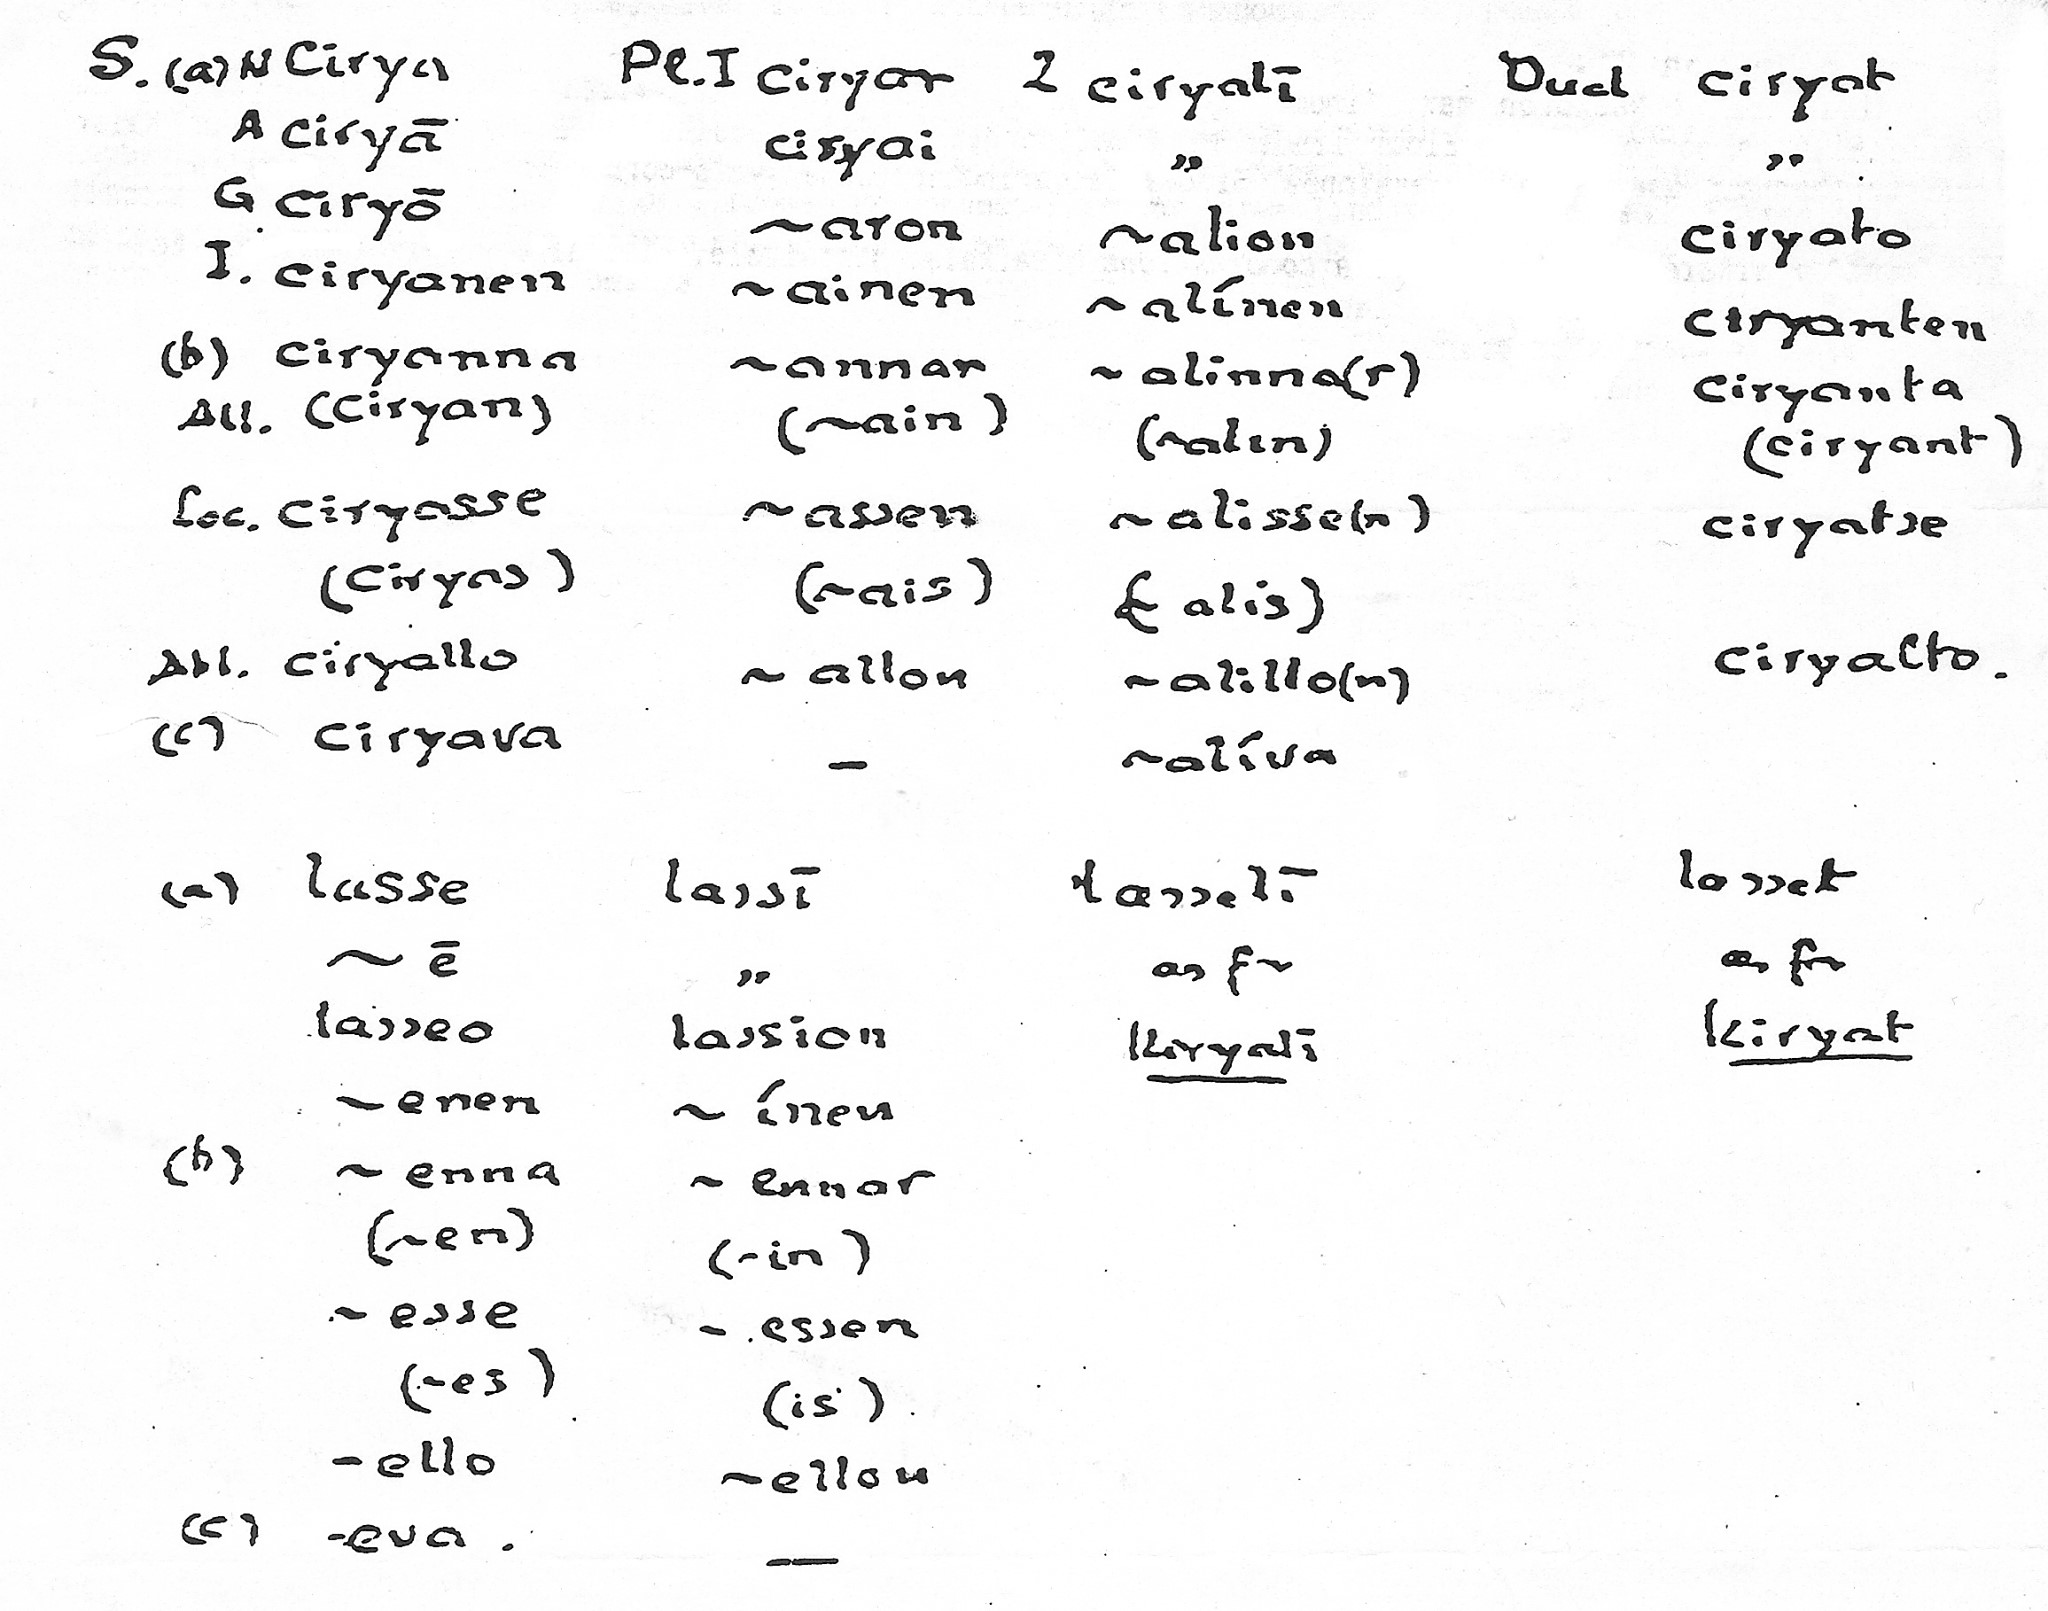 S. (a) N Cirya Pl. I ciryar 2 ciryalī Dual ciryat
A ciryā ciryai „ „
G ciryō ~aron ~alion ciryato
I. ciryanen ~ainen ~alínen ciryanten
(b) ciryanna ~annar ~alinna(r) ciryanta
All. (ciryan) (~ain) (~alin) (ciryant)
Loc. ciryasse ~assen ~alisse(n) ciryatse
(ciryas) (~ais) (~alis)
Abl. ciryallo ~allon ~alillo(n) ciryalto.
(c) ciryava – ~alíva
(a) lasse lassī lasselī lasset
~ē „ as fr as fr
lasseo lassion kiryalī kiryat
~enen ~ínen
(b) ~enna ~ennar
(~en) (-in)
~esse -essen
(~es) (is)
-ello ~ellon
(c) -eva. —